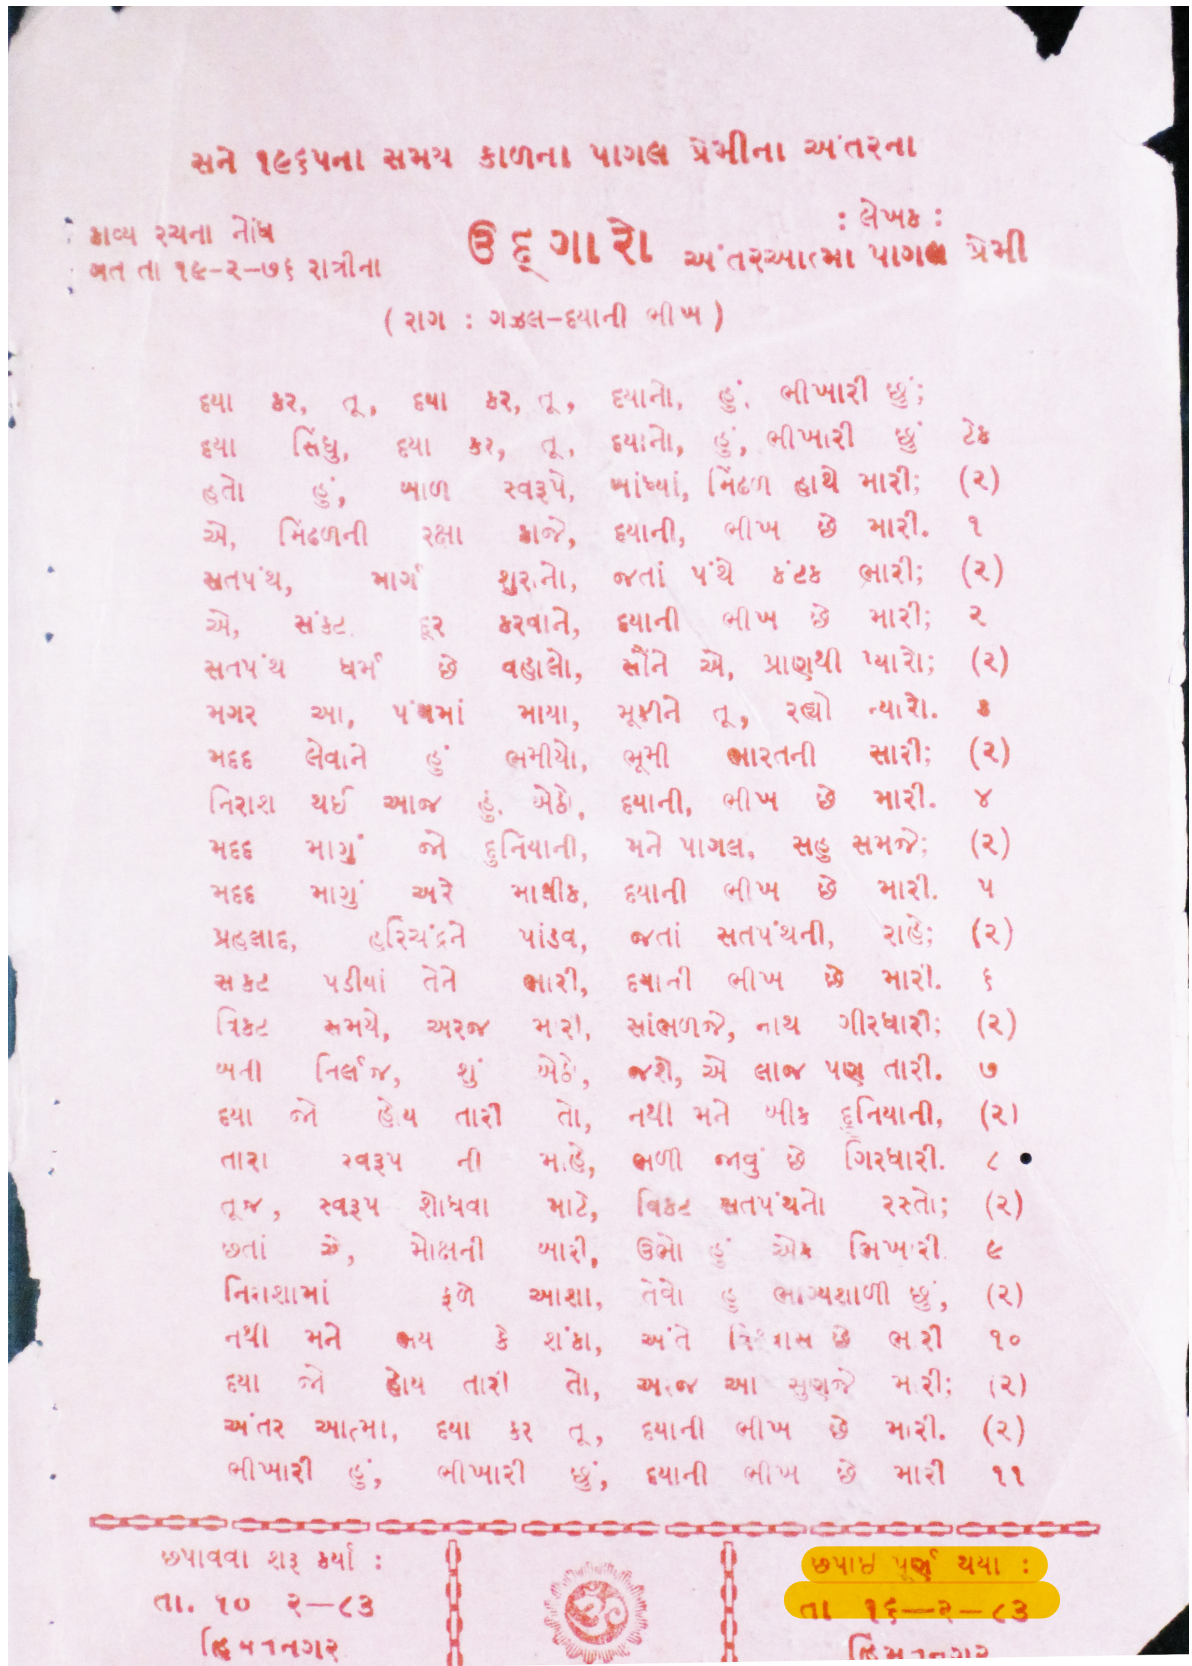 સને ૧૯૬૫ના સમય કાળના પાગલ પ્રેમીના અંતરના
કાવ્ય રચના નોંધ
ઉદ્ગારો
: લેખક :
ગત તા ૧૯-૨-૭૬ રાત્રીના
અંતરઆત્મા પાગલ પ્રેમી
( રાગ : ગઝલ-દયાની ભીખ )
દયા કર, તૂ, દયા કર, તૂ, દયાનો, હું, ભીખારી છું;
દયા સિંધુ, દયા કર, તૂ, દયાનો, હું, ભીખારી છું ટેક
હતો હું, બાળ સ્વરૂપે, બાંધ્યાં, મિંઢળ હાથે મારી; (૨)
એ, મિંઢળની રક્ષા કાજે, દયાની, ભીખ છે મારી. ૧
સતપંથ, માર્ગ શુરાનો, જતાં પંથે કંટક ભારી; (૨)
એ, સંકટ દૂર કરવાને, દયાની ભીખ છે મારી; ૨
સતપંથ ધર્મ છે વહાલો, સૌને એ, પ્રાણથી પ્યારો; (૨)
મગર આ, પંથમાં માયા, મૂકીને તૂ, રહ્યો ન્યારો. ૩
મદદ લેવાને હું ભમીયો, ભૂમી ભારતની સારી; (૨)
નિરાશ થઈ આજ હું, બેઠો, દયાની, ભીખ છે મારી. ૪
મદદ માગું જો દુનિયાની, મને પાગલ, સહુ સમજે; (૨)
મદદ માગું અરે માલીક, દયાની ભીખ છે મારી. ૫
પ્રહલાદ, હરિચંદ્રને પાંડવ, જતાં સતપંથની, રાહે; (૨)
સકટ પડીયાં તેને ભારી, દયાની ભીખ છે મારી. ૬
વિકટ સમયે, અરજ મારી, સાંભળજે, નાથ ગીરધારી; (૨)
બની નિર્લજ, શું બેઠો, જશે, એ લાજ પણ તારી. ૭
દયા જો હોય તારી તો, નથી મને બીક દુનિયાની, (૨)
તારા સ્વરૂપ ની માહે, ભળી જાવું છે ગિરધારી. ૮
તૂજ, સ્વરૂપ શોધવા માટે, વિકટ સતપંથનો રસ્તો; (૨)
છતાં એ, મોક્ષની બારી, ઉભો હું એક ભિખારી ૯
નિરાશામાં ફળે આશા, તેવો હુ ભાગ્યશાળી છું, (૨)
નથી મને ભય કે શંકા, અંતે વિશ્વાસ છે ભારી ૧૦
દયા જો હોય તારી તો, અરજ આ સુણજે મારી; (૨)
અંતર આત્મા, દયા કર તૂ, દયાની ભીખ છે મારી. (૨)
ભીખારી હું, ભીખારી છું, દયાની ભીખ છે મારી ૧૧
છપાવવા શરૂ કર્યા :
છપાઈ પુર્ણ થયા :
તા. ૧૦ ૨—૮૩
તા ૧૬—૨—૮૩
હિંમતનગર
હિંમતનગર